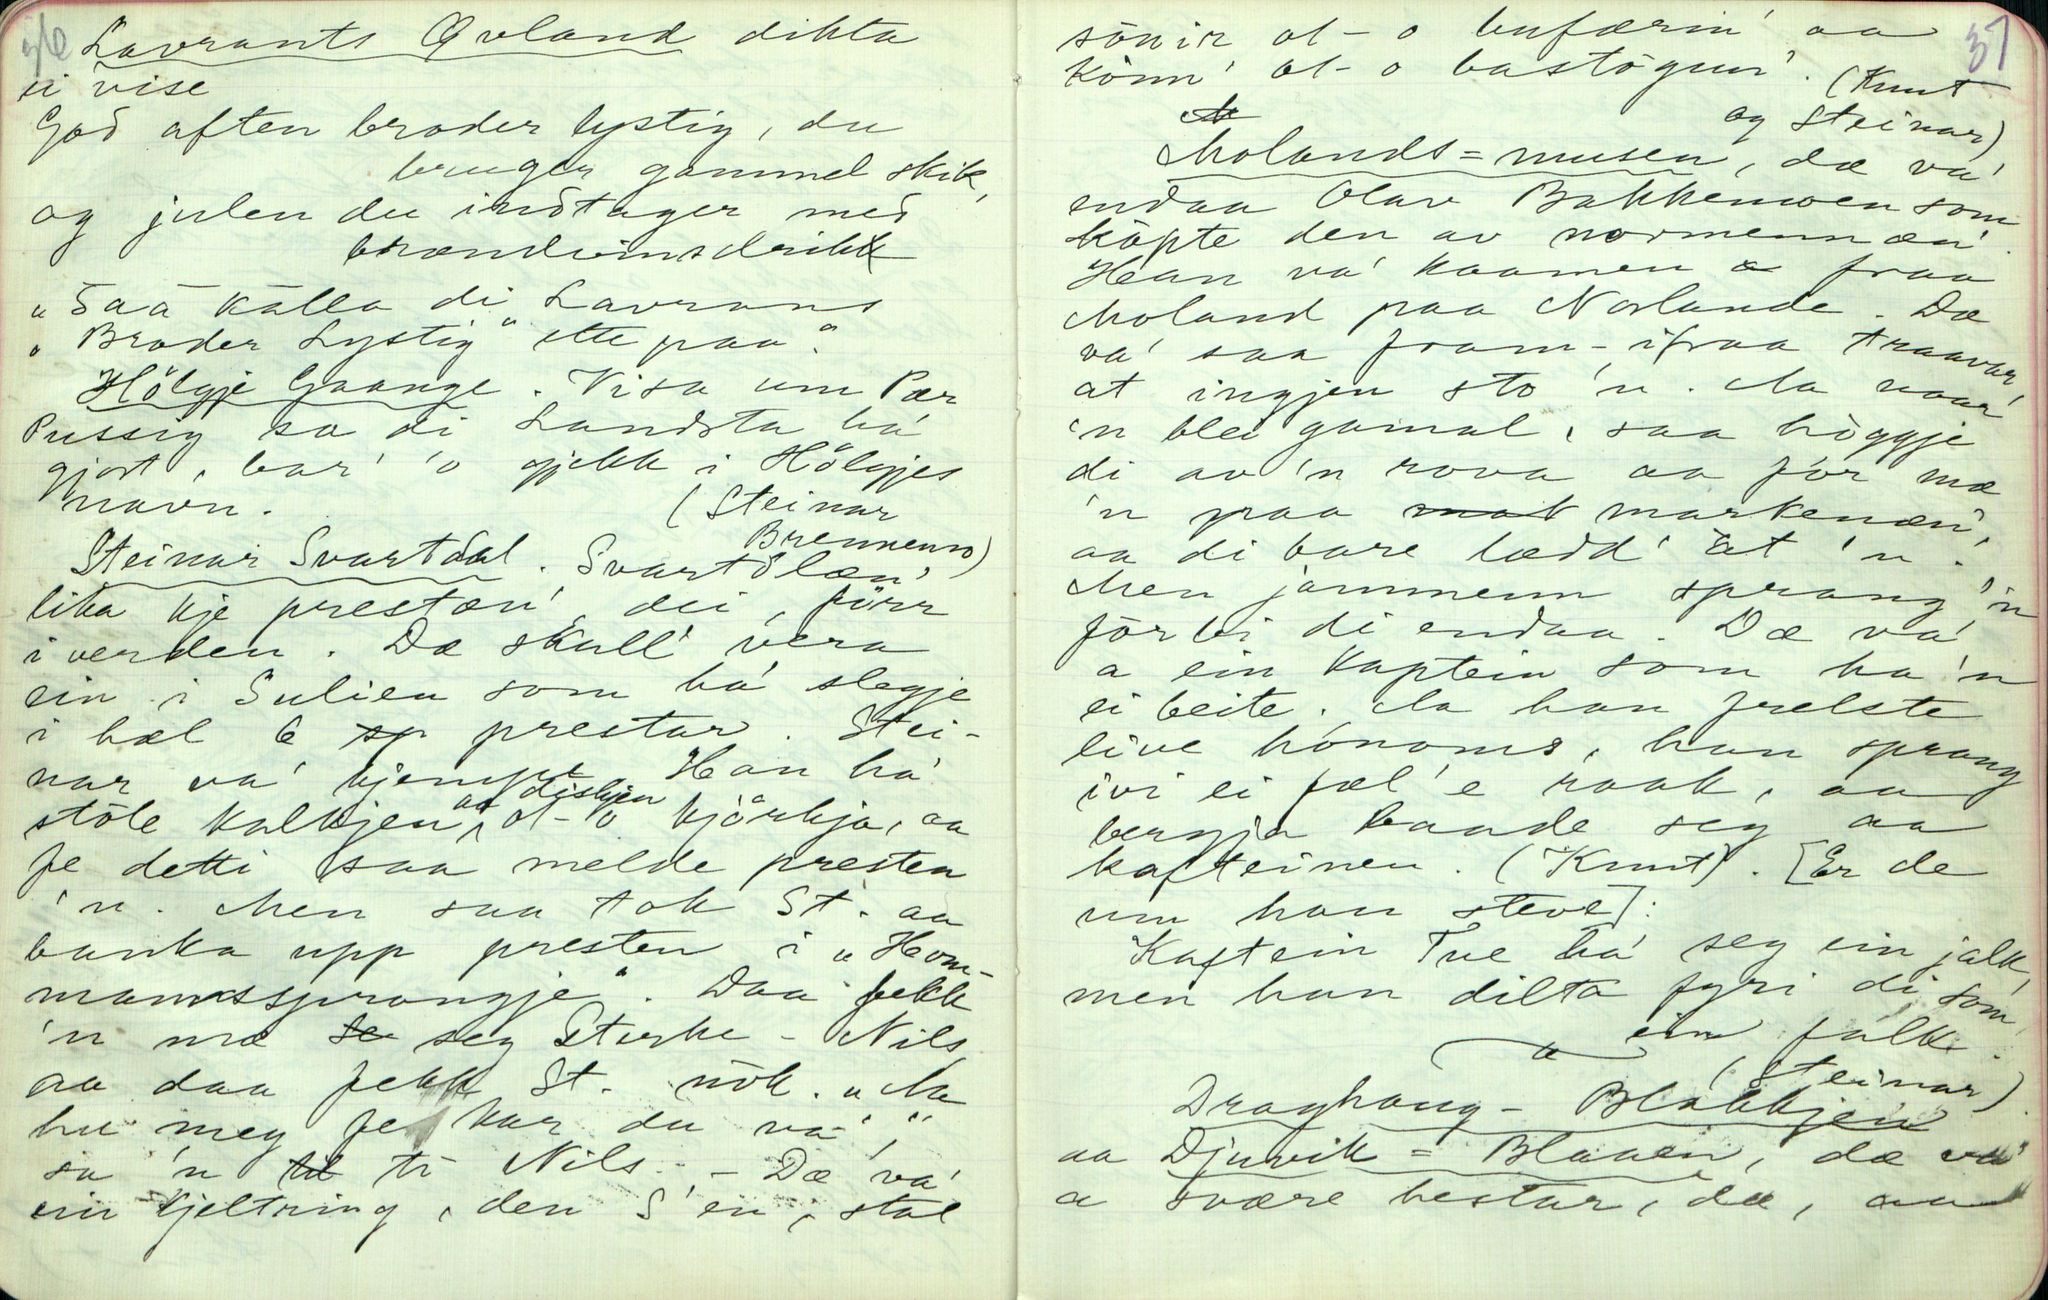 36
Lavrants Qvland dikta
ei vise
God aften broder lystig, du
bruger gammel skik,
og julen du indtager med
brændvinsdrikk
"Saa kalla di Lavrans
"Broder Lystig" ette paa".
Hölgje Gaange. Visa um Pær
Pussig sa di Landsta há
gjort, bar' 'o gjekk i Hölgjes
navn. (Steinar
Brennemo)
Steinar Svartdal. Svartdlæn'
lika kje prestæn', dei, förr
i verden. Dæ skull' vera
ein i Sulien som há slegje
i hæl 6 sp prestar. Stei-
nar va' kjempe Han há
aa diskjen
stöle kalkjen ot-o kjörkja, aa
fe detti saa melde presten
'n. Men saa tok St. aa
banka upp presten i "Hom-
mamssprangje". Daa fekk
'n mæ se seg Sterke-Nils
aa daa fekk St. nok. "Ma
hu meg fe kar du va',"
sa 'n til ti Nils. - Dæ va'
ein kjeltring, den S'en, stal
37
sönir ot-o bufærin' aa
könn' ot-o bastögun'. (Knut
og Steinar)
M
Molands=musen, dæ va'
endaa Olav Bakkemoen som
köpte den av normennæn'.
Han va' kaamen a fraa
Moland paa Norlande. Dæ
va' saa fram-ifraa traavar,
at ingjen sto 'n. Ma naar
'n blei gamal, saa höggje
di av 'n rova aa fór mæ
'n paa mak markenæn',
aa di bare lædd' at 'n.
Men jammenn sprang 'n
förbi di endaa. Dæ va'
a ein kaptein som ha 'n
ei beite. Ma han frelste
live hónoms, han sprang
ivi ei fæl'e raak, aa
bergja baade seg aa
kafteinen. (Knut). [Er de
um han steve]:
Kaftein Tue há seg ein jalk,
men han dilta fyri di som
ein falk.
(Steinar).
Draghaug-Blakkjen
aa Djuvik=Blaaen, dæ va'
a svære hestar, dæ, aa